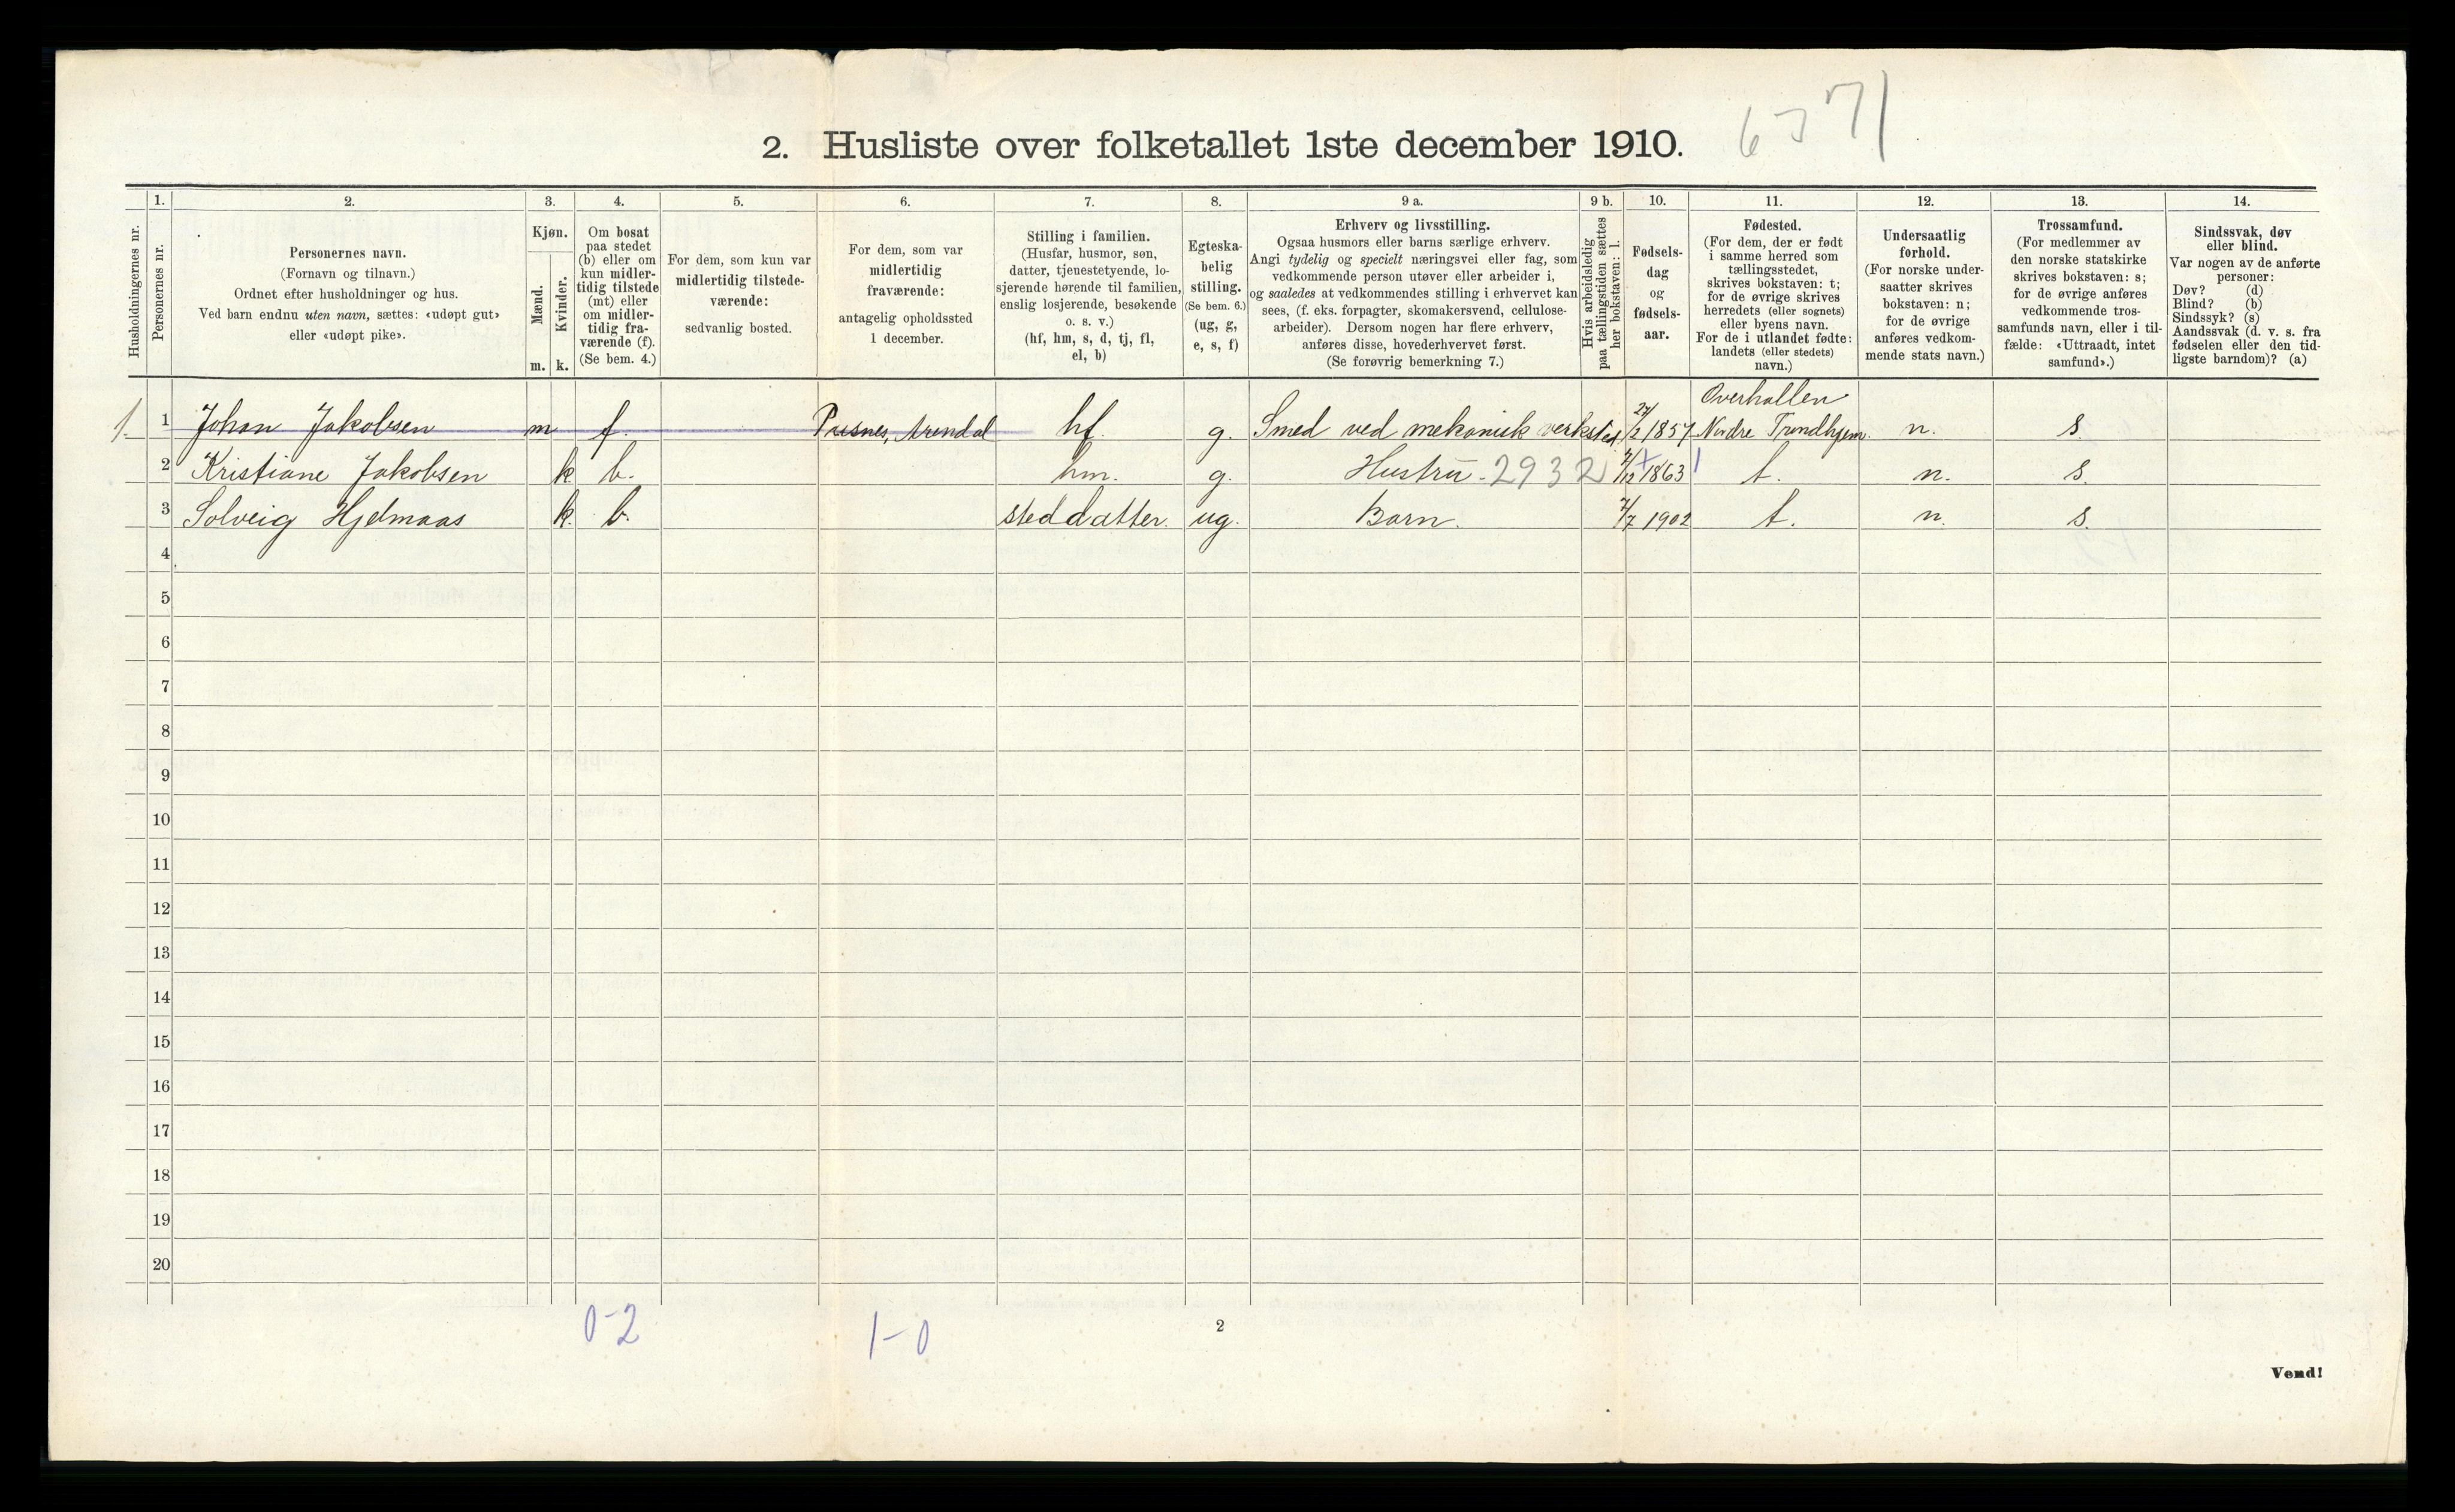 6371
2. Husliste over folketallet 1ste december 1910.
Husholdningernes nr.
1.
Personernes nr.
2.
Personernes navn.
(Fornavn og tilnavn.)
Ordnet efter husholdninger og hus.
Ved barn endnu uten navn, sættes: «udøpt gut»
eller «udøpt pike».
3.
Kjøn.
Mænd.
Kvinder.
m. k.
4.
Om bosat
paa stedet
(b) eller om
kun midler-
tidig tilstede
(mt) eller
om midler-
tidig fra-
værende (f).
(Se bem. 4.)
5.
For dem, som kun var
midlertidig tilstede-
værende:
sedvanlig bosted.
6.
For dem, som var
midlertidig
fraværende:
antagelig opholdssted
1 december.
7.
Stilling i familien.
(Husfar, husmor, søn,
datter, tjenestetyende, lo-
sjerende hørende til familien,
enslig losjerende, besøkende
o. s. v.)
(hf, hm, s, d, tj, fl,
el, b)
8.
Egteska-
belig
stilling.
(Se bem. 6.)
(ug, g,
e, s, f)
9 a.
Erhverv og livsstilling.
Ogsaa husmors eller barns særlige erhverv.
Angi tydelig og specielt næringsvei eller fag, som
vedkommende person utøver eller arbeider i,
og saaledes at vedkommendes stilling i erhvervet kan
sees, (f. eks. forpagter, skomakersvend, cellulose-
arbeider). Dersom nogen har flere erhverv,
anføres disse, hovederhvervet først.
(Se forøvrig bemerkning 7.)
9 b.
Hvis arbeidsledig
paa tællingstiden sættes
her bokstaven: l.
10.
Fødsels-
dag
og
fødsels-
aar.
11.
Fødested.
(For dem, der er født
i samme herred som
tællingsstedet,
skrives bokstaven: t;
for de øvrige skrives
herredets (eller sognets)
eller byens navn.
For de i utlandet fødte:
landets (eller stedets)
navn.)
12.
Undersaatlig
forhold.
(For norske under-
saatter skrives
bokstaven: n;
for de øvrige
anføres vedkom-
mende stats navn.)
13.
Trossamfund.
(For medlemmer av
den norske statskirke
skrives bokstaven: s;
for de øvrige anføres
vedkommende tros-
samfunds navn, eller i til-
fælde: «Uttraadt, intet
samfund».)
14.
Sindssvak, døv
eller blind.
Var nogen av de anførte
personer:
Døv? (d)
Blind? (b)
Sindssyk? (s)
Aandssvak (d. v. s. fra
fødselen eller den tid-
ligste barndom)? (a)
Overhallen
1. 1 Johan Jakobsen m f. Pusnes, Arendal hf. g. Smed ved mekanisk verksted. 27/2 1857 Nordre Trondhjem. n. s.
2 Kristiane Jakobsen k b. hm. g. Hustru. 2932 7/12 1863 t. n. s.
3 Solveig Hjelmaas k. b. steddatter. ug. Barn. 7/7 1902 t. n. s.
4
5
6
7
8
9
10
11
12
13
14
15
16
17
18
19
20
0-2 1-0
2
Vend!